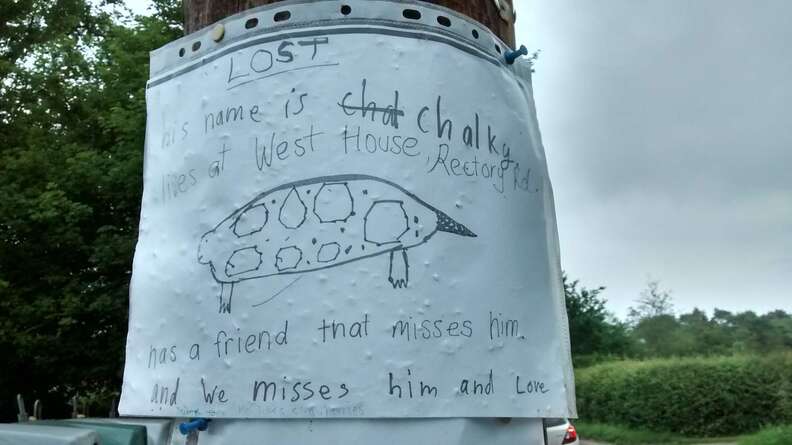 LOST
his name is chal chalky
lives at West House, Rectory Rd.
has a friend that misses him.
and we misses him and Love